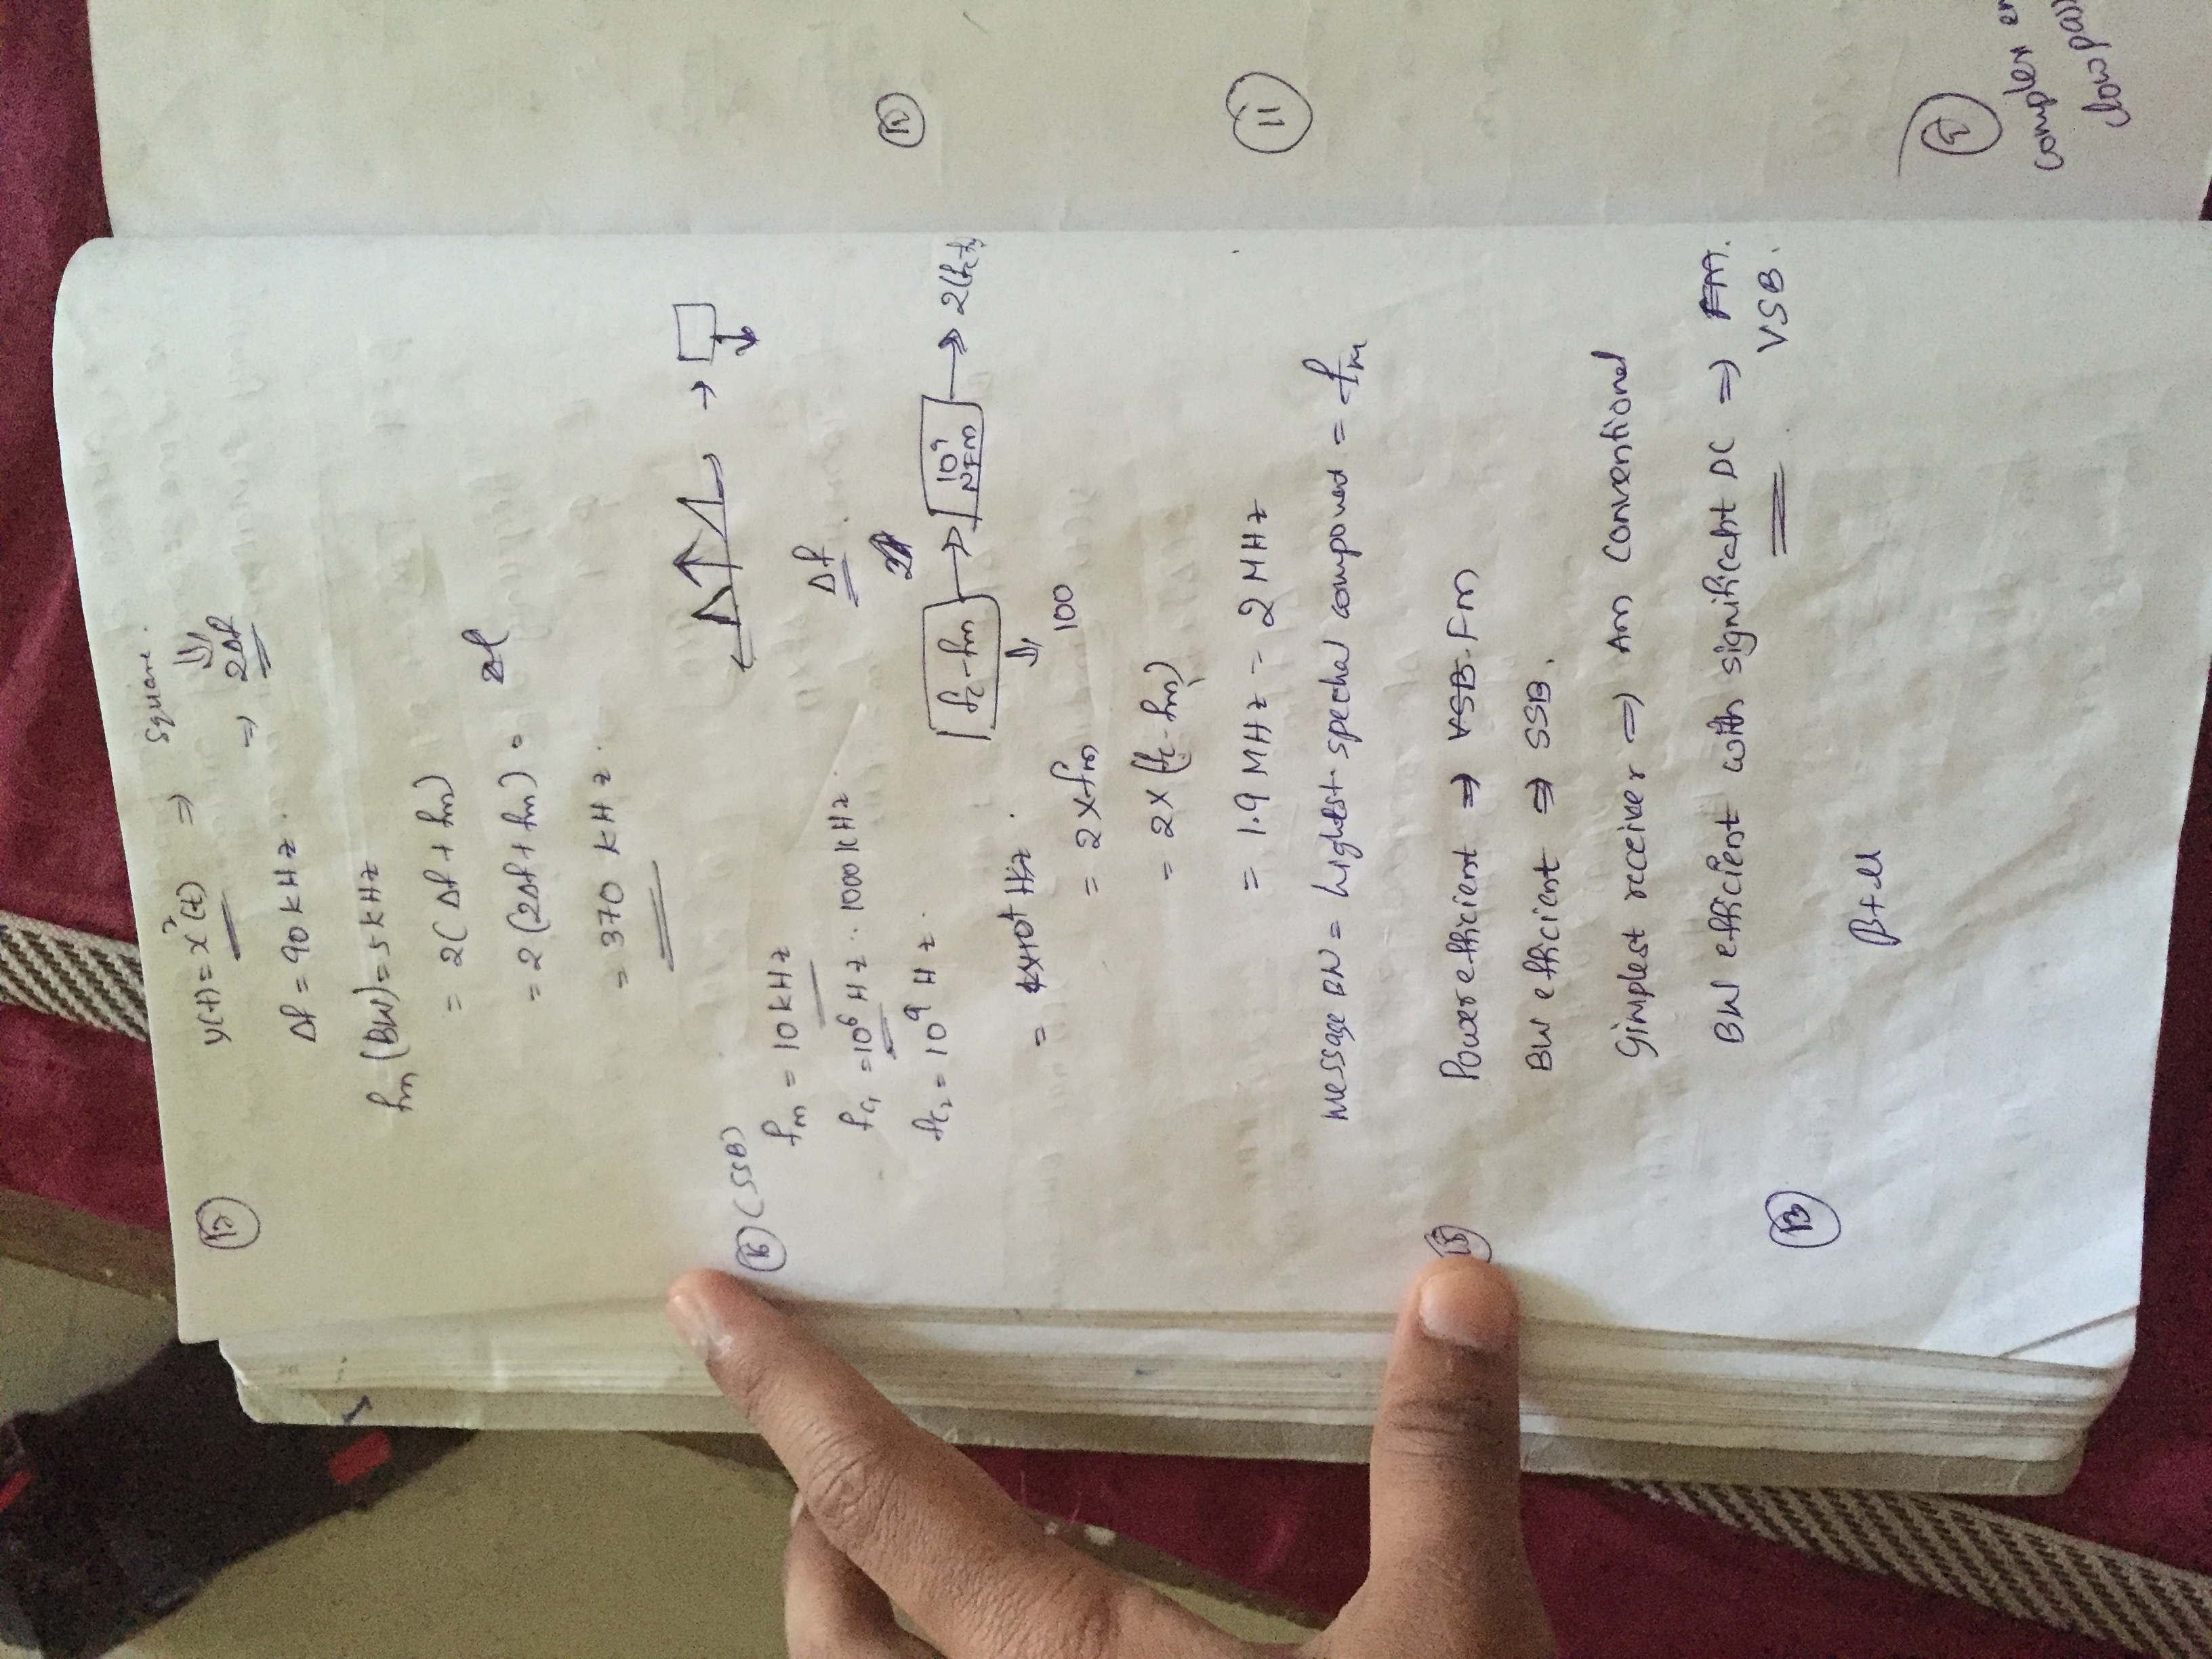 17 y(t) = x²(t) ⇒ Square.
⇓
⇒ 2Δf
Δf = 90 kHz.
fm (BW) = 5 kHz
= 2(Δf + fm)
= 2(2Δf + fm) =
= 370 kHz.
16 (SSB)
fm = 10 kHz
fc1 = 10⁶ Hz .. 1000 kHz
Δf
fc2 = 10⁹ Hz.
fc-fm → 10⁹ NFM → 2(fc-fm
⇓
100
= 2 x fm
= 2 x (fc - fm)
= 1.9 MHz - 2 MHz
Message BW = highest spectral component = fm
15 Power efficient ⇒ VSB. Fm
BW efficient ⇒ SSB.
Simplest receiver ⇒ Am Conventional
BW efficient with significant DC ⇒ FM.
VSB.
13
β + μ
12
11
complex en
low pass